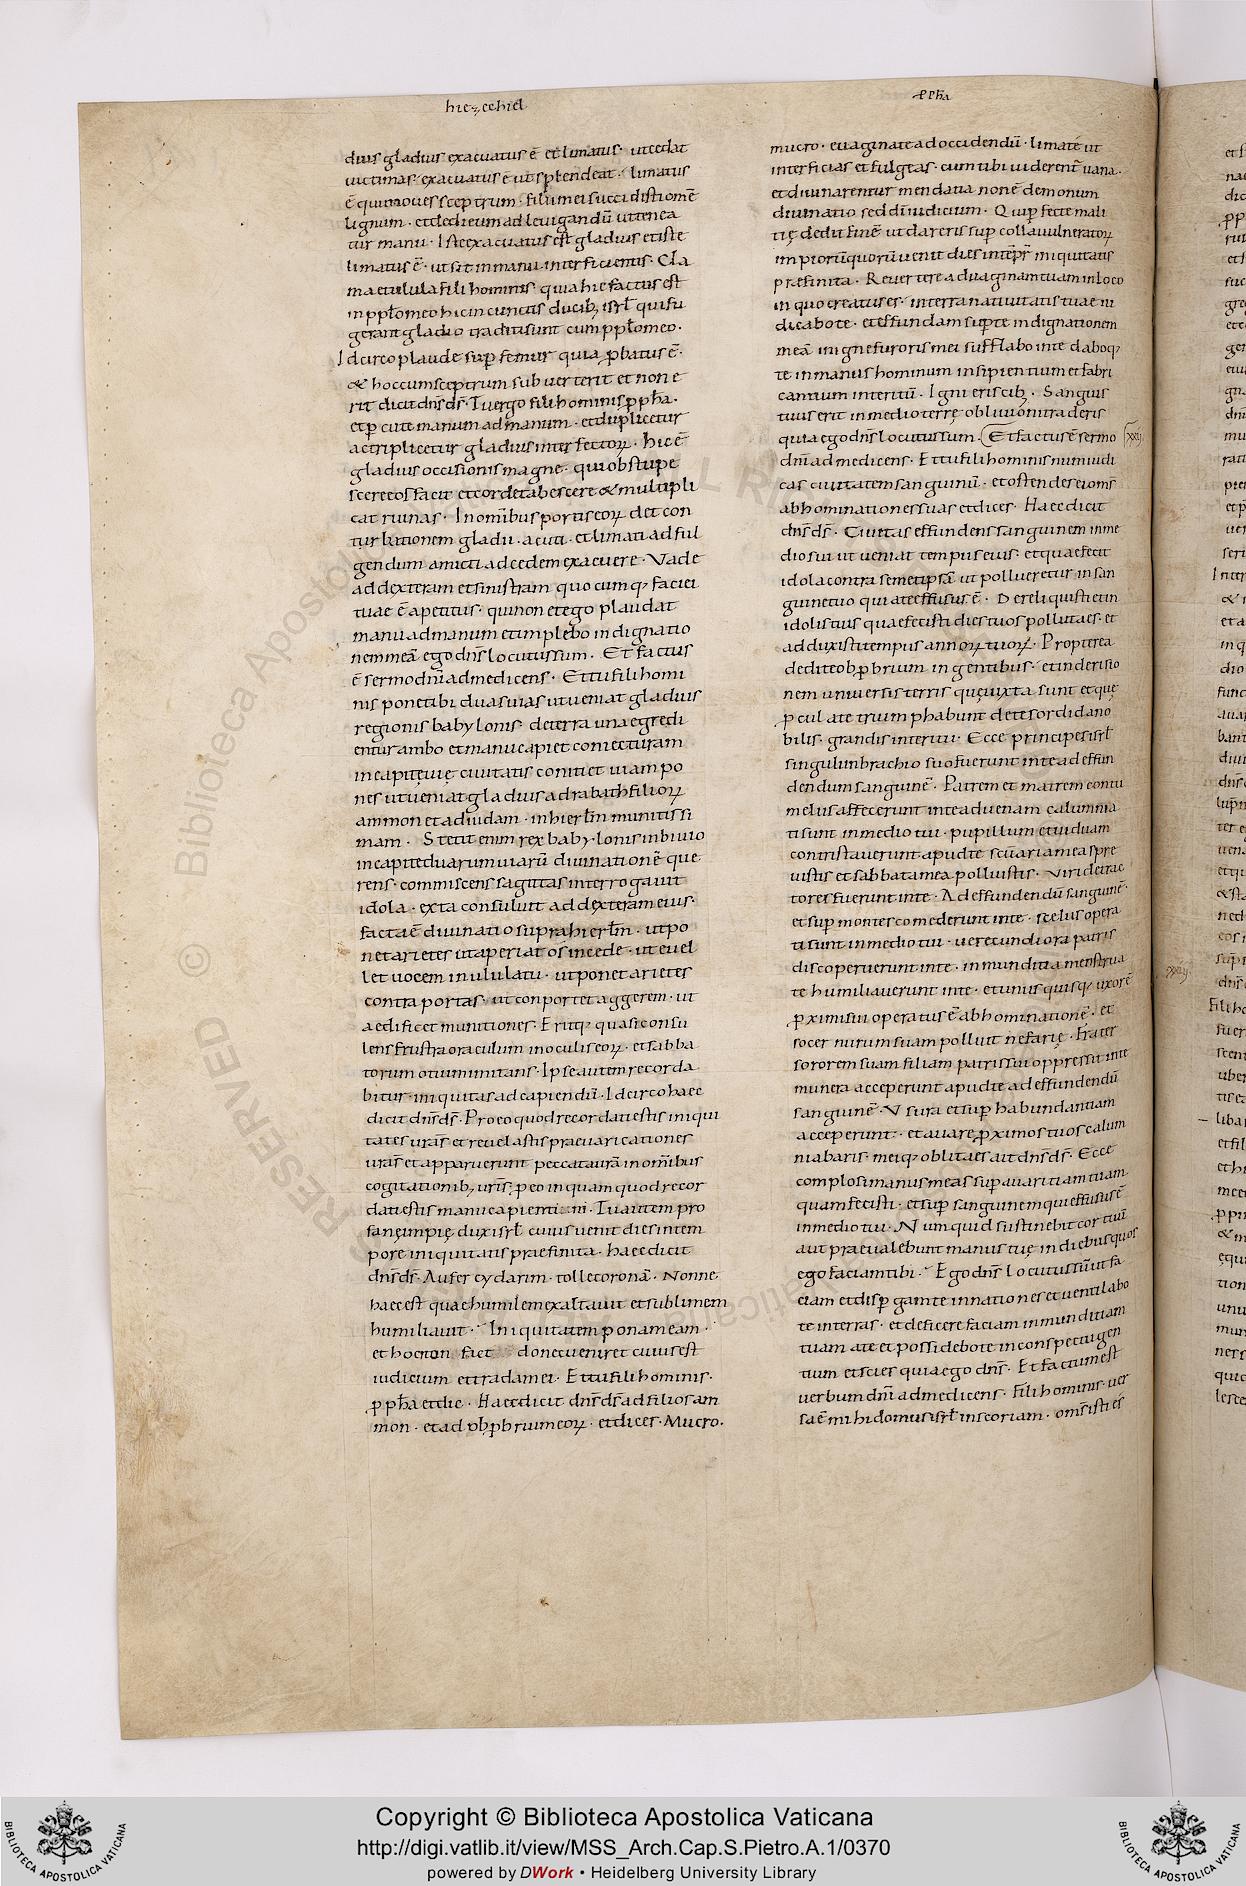 hiezechiel
ꝓpħa
duus gladius exacuatus ē et limatus· ut cedat
uictimas· exacuatus ē ut splendeat· limatus
ē qui moues sceptrum· filii mei succidisti omē
lignum· et dedi eum ad leuigandū ut tenea
tur manu· Iste exacuatus est gladius et iste
limatus ē· ut sit in manu interficientis· Cla
ma et ulula fili hominis· quia hic factus est
in ppło meo hic in cunctis ducibꝫ isrł qui fu
gerant gladio traditi sunt cum ppło meo·
Idcirco plaude suꝑ femur quia ꝓbatus ē·
& hoc cum sceptrum subuerterit et non e
rit dicit dn̄s ds̄· Tu ergo fili hominis ꝓpħa·
et ꝑcute manum ad manum· et duplicetur
ac triplicetur gladius interfectoꝝ· hic ē
gladius occisionis magne· qui obstupe
scere eos facit et corde tabescere & multipli
cat ruinas· In om̄ibus portis eoꝝ det con
turbationem gladii· acuti· et limati ad ful
gendum amicti ad cedem exacuere· Vade
ad dexteram et sinistram quocumqꝫ faciei
tuae ē apetitus· quin on et ego plaudat
manu ad manum et implebo indignatio
nem meā ego dn̄s locutus sum· Et factus
ē sermo dn̄i ad me dicens· Et tu fili homi
nis pone tibi duas uias ut ueniat gladius
regionis babylonis· de terra una egredi
entur ambo et manu capiet coniecturam
in capite uię ciuitatis coniciet uiam po
nes ut ueniat gladius ad rabath filioꝝ
ammon et ad iudam· in hierłm munitissi
mam· Stetit enim rex babylonis in biuio
in capite duarum uiarū diuinationē que
rens· commiscens sagittas interrogauit
idola· exta consuluit ad dexteram eius·
facta ē diuinatio supra hierłm· ut po
net arietes ut aperiat os in cede· ut euel
let uocem in ululatu· ut ponet arietes
contra portas· ut conportet aggerem· ut
aedificet munitiones· Eritqꝫ quasi consu
lens frustra oraculum in oculis eoꝝ· et sabba
torum otium imitans· Ipse autem recorda
bitur· iniquitas ad capiendū· Idcirco haec
dicit dn̄s ds̄· Pro eo quod recordati estis iniqui
tates urās et reuelastis praeuaricationes
urās et apparuerunt peccata urā in om̄ibus
cogitationibꝫ urīs ꝑ eo inquam quod recor
dati estis manu capiemini· Tu autem pro
fanę impię dux isrł cuius uenit dies in tem
pore iniquitatis praefinita· haec dicit
dn̄s ds̄· Aufer cydarim· tolle coronā· Nonne
haec est quae humilem exaltauit et sublimem
humiliauit· Iniquitatem ponam eam·
et hoc non fiet donec ueniret cuius est
iudicium et tradam ei· Et tu fili hominis·
ꝓpħa et dic· Haec dicit dn̄s ds̄ ad filios am
mon· et ad obꝓbrium eoꝝ· et dices· Mucro·
mucro· euaginate ad occidendū· limate ut
interficias et fulgeas· cum tibi uiderent̄ uana·
et diuinarentur mendatia non ē demonum
diuinatio sed dn̄i iudicium· Qui ꝑfecte mali
tię dedit finē ut dareris suꝑ colla uulneratoꝝ
impiorū quorū uenit dies in tēpr̄ iniquitatis
praefinita· Reuertere ad uaginam tuam in loco
in quo creatus es· in terra natiuitatis tuae iu
dicabo te· et effundam suꝑ te indignationem
meā in igne furoris mei sufflabo in te daboqꝫ
te in manus hominum insipientium et fabri
cantium interitū· Igni eris cibꝫ· Sanguis
tuus erit in medio terrę obliuioni traderis
quia ego dn̄s locutus sum· Et factus ē sermo
xxij
dn̄i ad me dicens· Et tu fili hominis num iudi
cas ciuitatem sanguinū· et ostendes ei om̄s
abhominationes suas et dices· Haec dicit
dn̄s ds̄· Ciuitas effundens sanguinem in me
dio sui ut ueniat tempus eius· et quae fecit
idola contra semetipsā ut pollueretur· in san
guine tuo qui a te effusus ē· Dereliquisti et in
idolis tuis quae fecisti dies tuos polluta es· et
adduxisti tempus annoꝝ tuoꝝ· Propterea
dedi te obꝓbrium in gentibus· et in derisio
nem uniuersis terris quę iuxta sunt et que
ꝓcul a te triumphabunt de te sordida no
bilis· grandis interitu· Ecce principes isrł
singuli in brachio suo fuerunt in te ad effun
dendum sanguinē· Patrem et matrem contu
meliis affecerunt in te aduenam calumnia
ti sunt in medio tui· pupillum et uiduam
contristauerunt apud te· scūaria mea spre
uistis et sabbata mea polluistis· Viri detrac
tores fuerunt in te· Ad effundendū sanguinē·
et suꝑ montes comederunt in te· scelus opera
ti sunt in medio tui· uerecundiora patris
discoperuerunt in te· inmunditia menstrua
te humiliauerunt in te· et unusquisqꝫ uxorē
ꝓximi sui operatus ē abhominationē· et
socer nurum suam polluit nefarię· Frater
sororem suam filiam patris sui oppressit in te
munera acceperunt apud te ad effundendū
sanguinē· Vsura et suꝑhabundantiam
acceperunt· et auare ꝓximos tuos calum
niabaris· meiqꝫ oblita es ait dn̄s ds̄· Ecce
complosi manus meas suꝑ auaritiam tuam
quam fecisti· et suꝑ sanguinem qui effusus ē
in medio tui· Numquid sustinebit cor tuū
aut praeualebunt manus tuę in diebus quos
ego faciam tibi· Ego dn̄s locutus sū ut fa
ciam et disꝑgam te in nationes et uentilabo
te in terras· et deficere faciam inmunditiam
tuam a te et possidebo te in conspectu gen
tium et scies quia ego dn̄s· Et factum est
uerbum dn̄i ad me dicens· Fili hominis· uer
sa ē mihi domus isrł in scoriam· om̄s isti es
xxiij